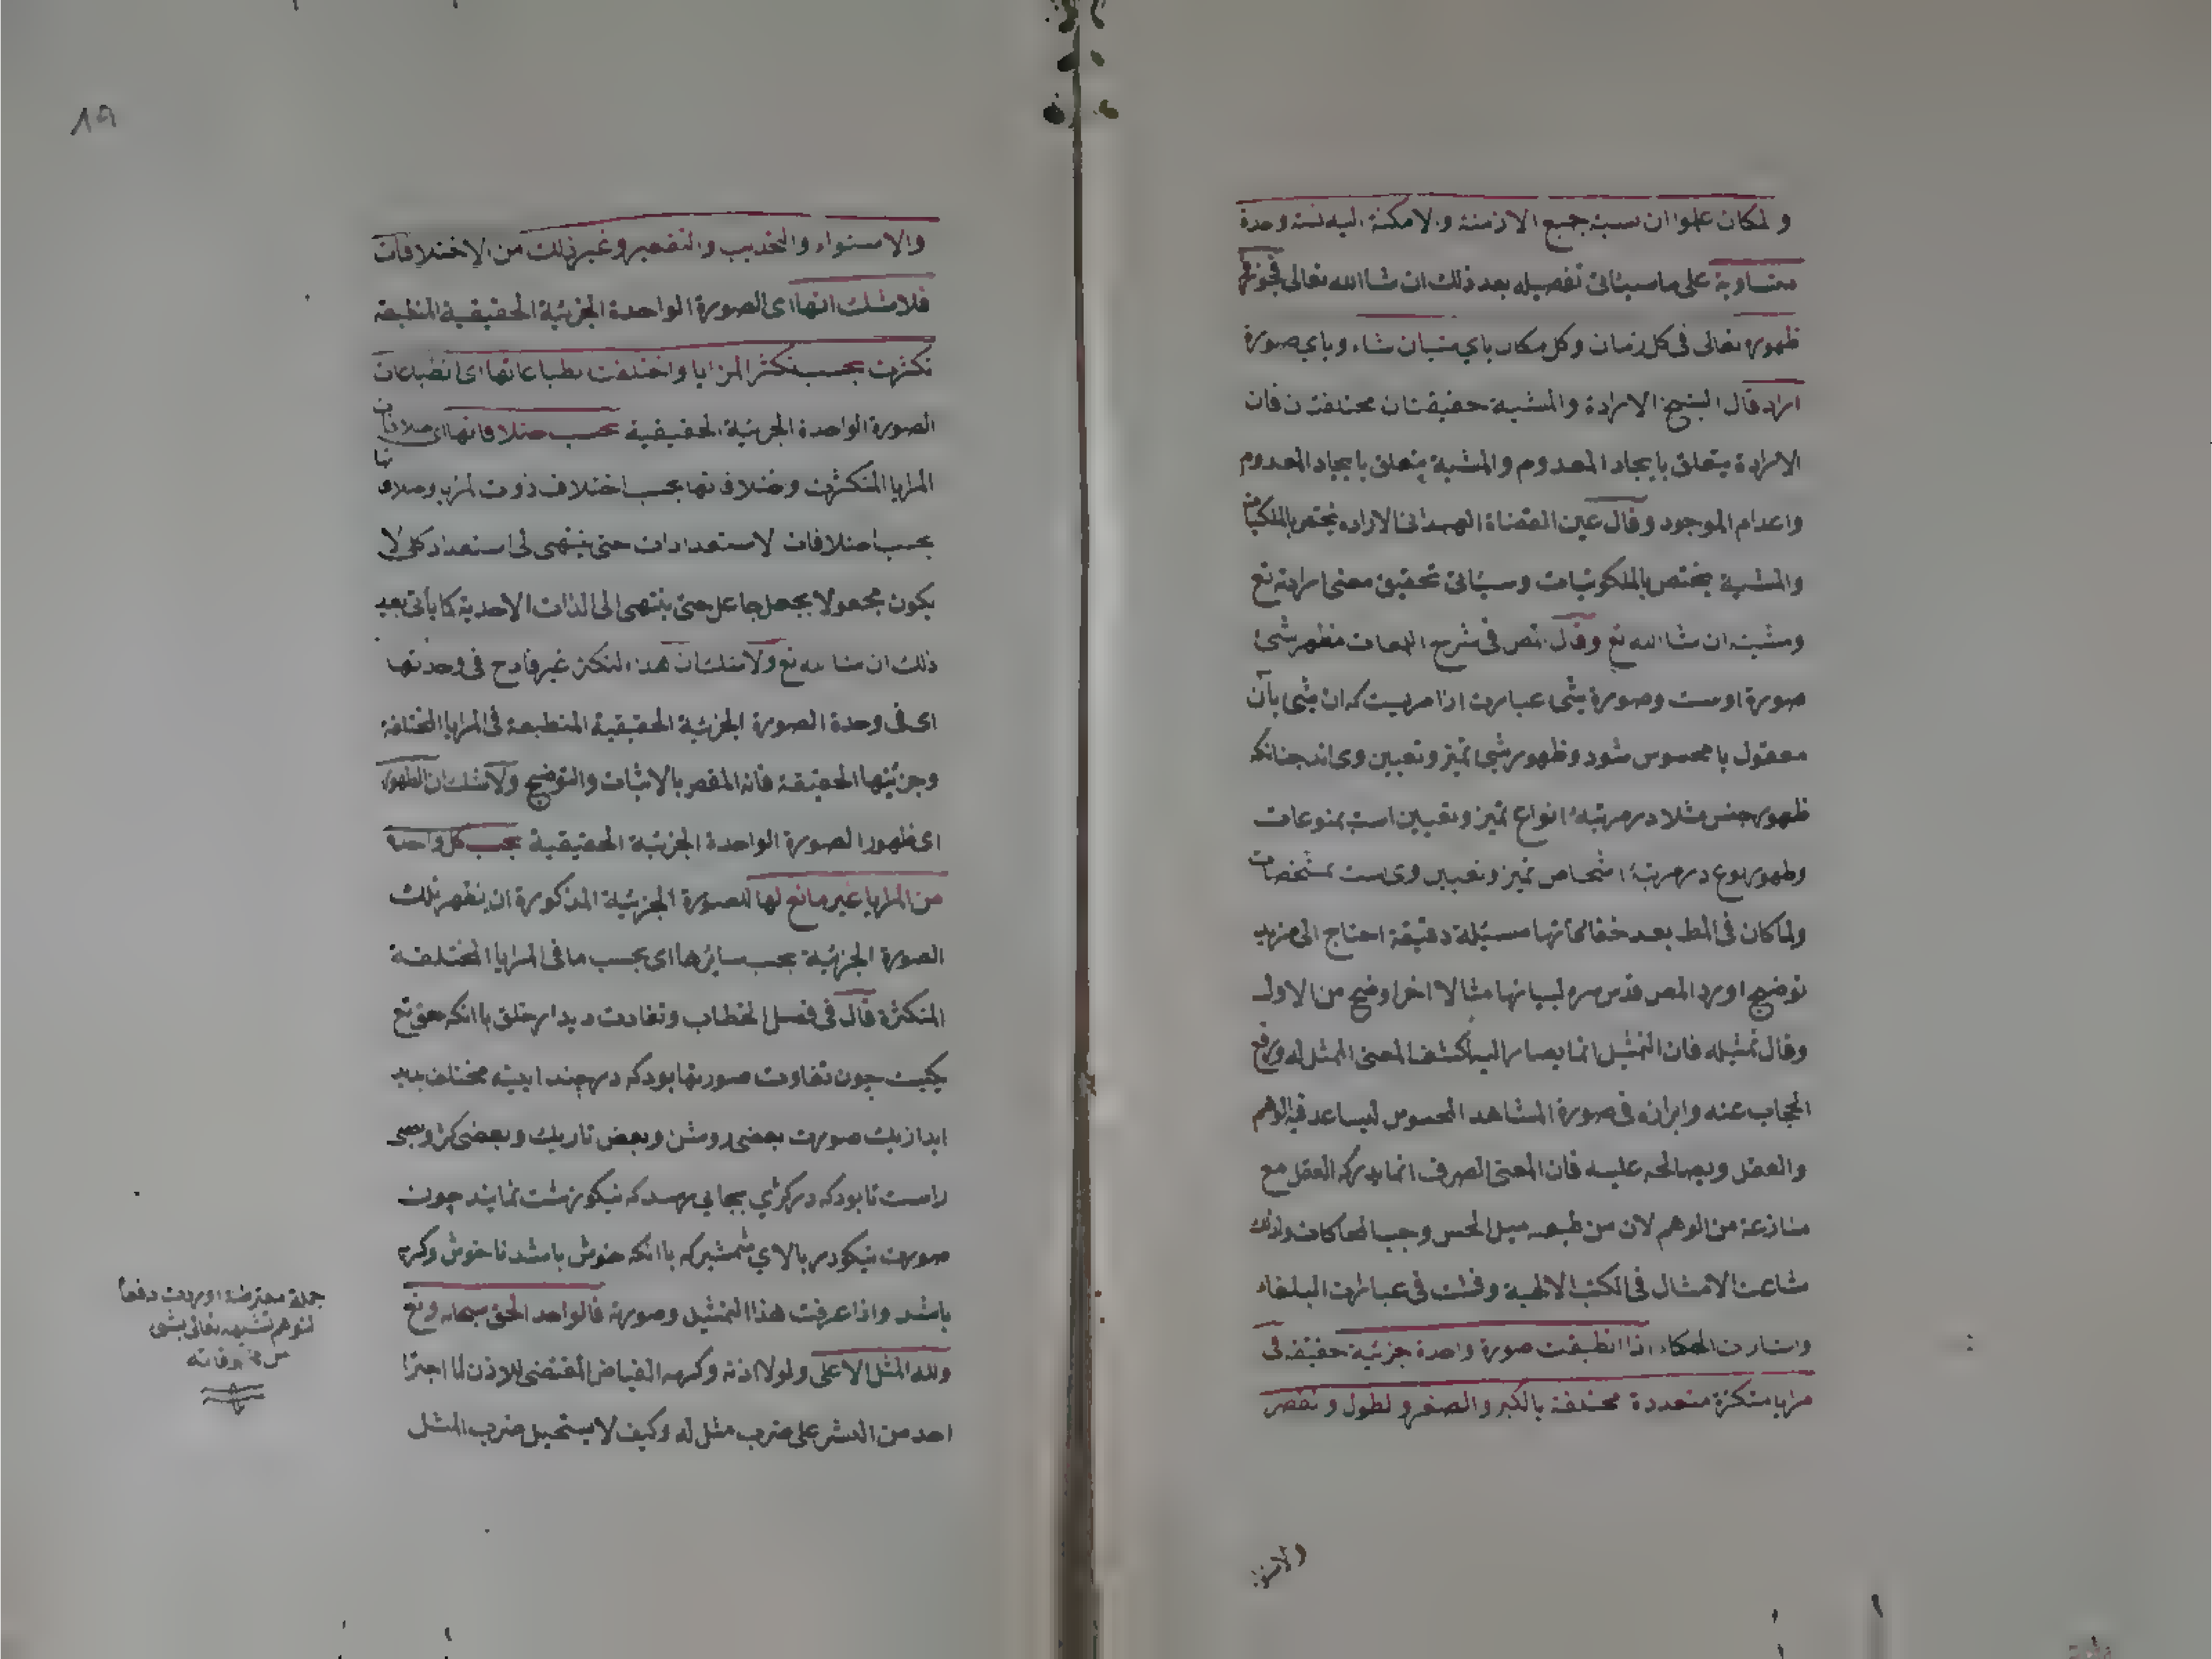 والمكان علموا ان نسبة جميع الازمنة والامكنة اليه نسبة وحدة
متساوية على ما سيئاتى تفصيله بعد ذلك ان شاالله تعالى فجوز
ظهوره تعالى فى كل زمان وكل مكان باي شان شاء وباي صورة
اراد قال الشيخ الارادة والمشية حقيقتان مختلفتان فان
الارادة يتعلق بايجاد المعدوم والمشية يتعلق بايجاد المعدوم
واعدام الموجود وقال عين القضاة الهمدانى الاراده يختص بالملكيات
والمشية يختص بالملكوتيات وسيئاتى تحقيق معنى ارادته تع
ومشيته ان شا الله تع وقال المص فى شرح اللمعات مظهر شئ
صورة اوست وصورة شئ عبارت از امريست كه ان شئ بآن
معقول يا محسوس شود وظهور شئ تميز وتعين وى اند چنانكه
ظهور جنس مثلا در مرتبۀ انواع تميز وتعيين است بمنوعات
وظهور نوع در مرتبۀ اشخاص تميز وتعيين وى است بمشخصات
ولما كان فى المط بعد خفا لانها مسئلة دقيقة احتاج الى مزيد
توضيح اورد المص قدس سره لبيانها مثالا اخر اوضح من الاول
وقال تمثيله فان التمثيل انما يصار اليه لكشف المعنى الممثل له ورفع
الحجاب عنه وابرازه فى صورة المشاهد المحسوس ليساعد فيه الوهم
والعقل ويصالحه عليه فان المعنى الصرف انما يدركه العقل مع
منازعة من الوهم لان من طبعه ميل الحس وحب المحاكات ولذلك
شاعت الامثال فى الكتب الالهية وفشت فى عبارات البلغاء
واشارت الحكاء اذا انطبقت صورة واحدة جزئية حقيقة فى
مرايا متكثرة متعددة مختلفة بالكبر والصغر والطول والقصر
الاستوا
١٩
والاستواء والتحديب والتقعير وغير ذلك من الاختلافات
فلا شك انها اى الصورة الواحدة الجزئية الحقيقية المنطبعة
تكثرت بحسب تكثر المرايا واختلفت انطباعاتها اى انطباعات
الصورة الواحدة الجزئية الحقيقية بحسب اختلافاتها اى اختلافات
المرايا المتكثرت واختلافاتها بحسب اختلاف ذوات المرايا واختلافاتها
بحسب اختلافات الاستعدادات حتى ينتهى الى استعداد كلى لا
يكون مجعولا بجعل جاعل حتى ينتهى الى الذات الاحدية كما يأتى بعد
ذلك ان شا الله تع ولا شك ان هذا التكثر غير قادح فى وحدتها
اى فى وحدة الصورة الجزئية الحقيقية المنطبعة فى المرايا المختلفة
وجزئيتها الحقيقة فانه المقصر بالاثبات والتوضيح ولا شك ان الظهور
اى ظهور الصورة الواحدة الجزئية الحقيقية بحسب كل واحدة
من المرايا غير مانع لها للصورة الجزئية المذكورة ان يظهر تلك
الصورة الجزئية بحسب سايرها اى بحسب ما فى المرايا المختلفة
المتكثرة قال فى فصل الخطاب وتفاوت ديدار خلق با انكه حق تع
يكيست چون تفاوت صورتها بود كه در چند اينه مختلف پديد
ايد از يك صورت بعضى روشن وبعض تاريك وبعضى كژ وبعضى
راست تا بود كه در كژي بجايي رسد كه نيكو زشت نمايند چون
صورت نيكو در بالاي شمشير كه با انكه خوش باشد ناخوش وكريه
باشد واذا عرفت هذا التمثيل وصورته فالواحد الحق سبحانه وتع
ولله المثل الاعلى ولولا اذنه وكرمه الفياض المقتضى للاذن لما اجترا
احد من البشر على ضرب مثل له وكيف لا يستحيل ضرب المثل
جملة معترضة اوردت دفعا
لتوهم تشبيهه تعالى بشئ
من مخلوقاته